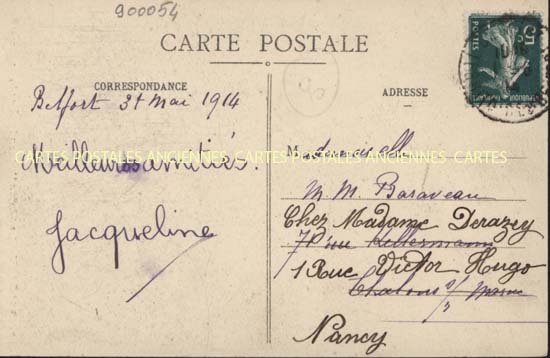 900054
CARTE POSTALE
CORRESPONDANCE
ADRESSE
Belfort 31 Mai 1914
Meilleures amitiés.
Jacqueline
Mademoiselle
M. M. Baraveau
Chez Madame Derazey
7 rue Kellermann
1 Rue Victor Hugo
Chalons s/ Marne
Nancy
5
POSTES
CARTES POSTALES ANCIENNES CARTES POSTALES ANCIENNES CARTES